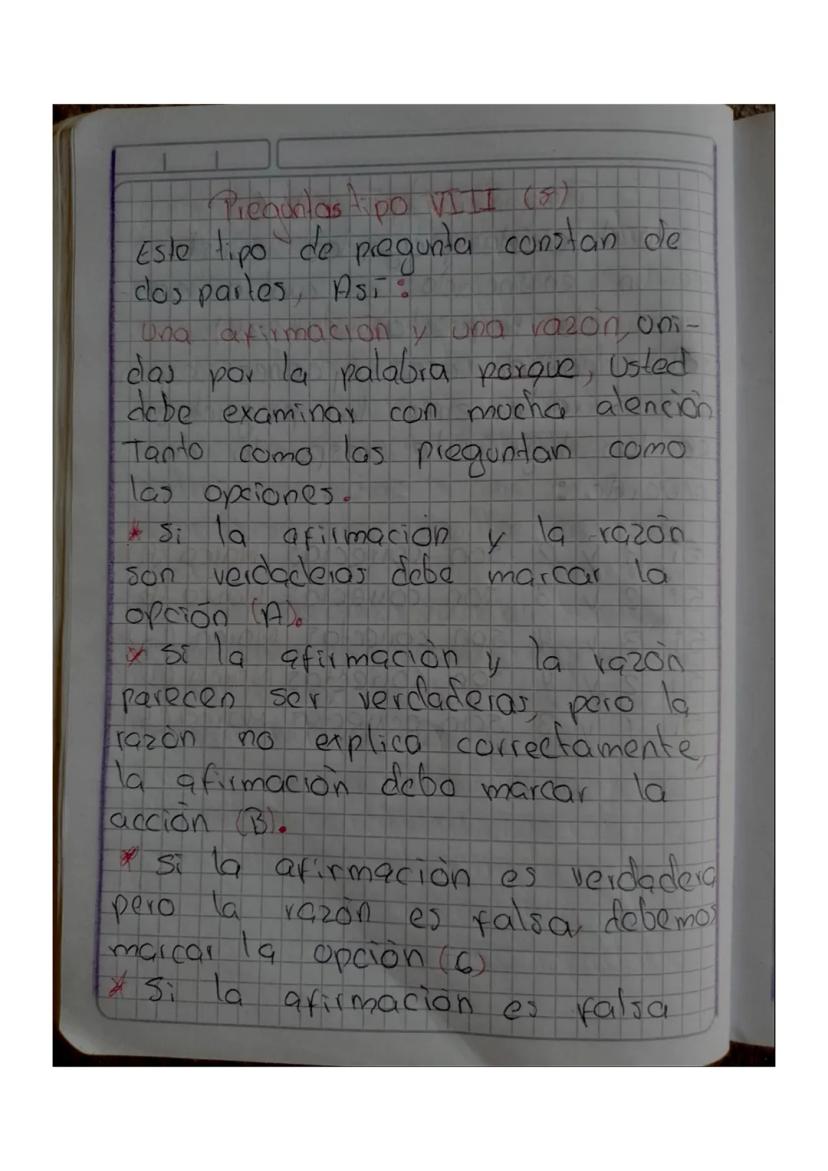 Preguntas tipo VIII (8)
Este tipo de pregunta constan de
dos partes, Así:
Una afirmación y una razón, uni-
das por la palabra porque, Usted
debe examinar con mucha atención
Tanto como las preguntan como
las opciones.
* Si la afirmación y la razón
son verdaderas debe marcar la
opción (A).
* Si la afirmación y la razón
parecen ser verdaderas, pero la
razón no explica correctamente,
la afirmación debo marcar la
acción (B).
* Si la afirmación es verdadera
pero la razón es falsa, debemos
marcar la opción (C)
* Si la afirmación es falsa